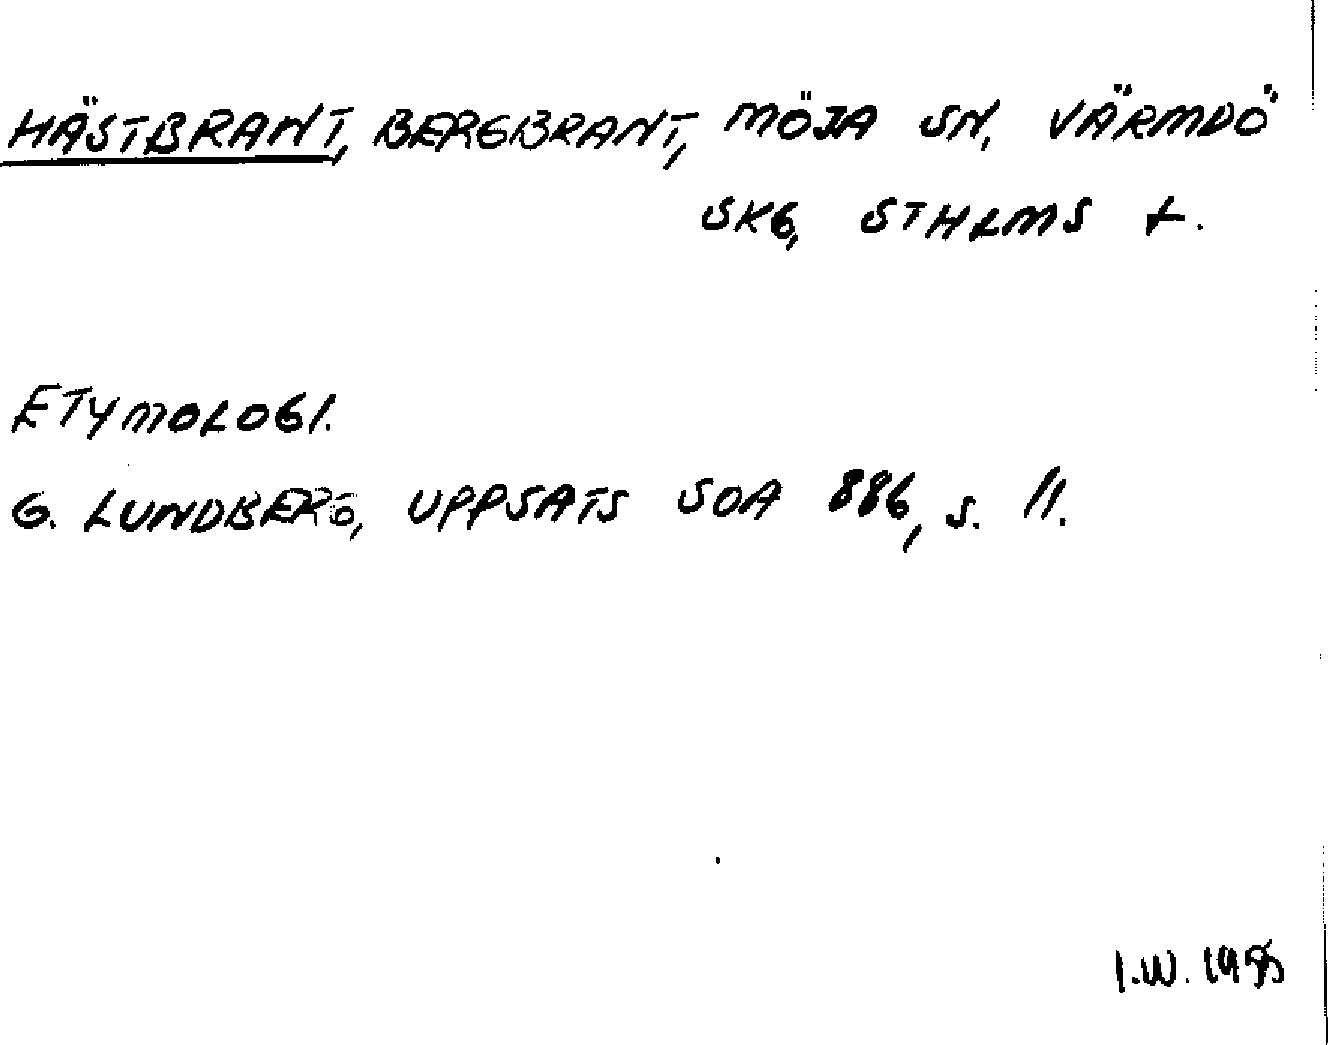 HÄSTBRANT, BERGBRANT, MÖJA SN, VÄRMDÖ
SKG, STHLMS L.
ETYMOLOGI.
G. LUNDBERG, UPPSATS SOA 886, S. 11.
I.W.